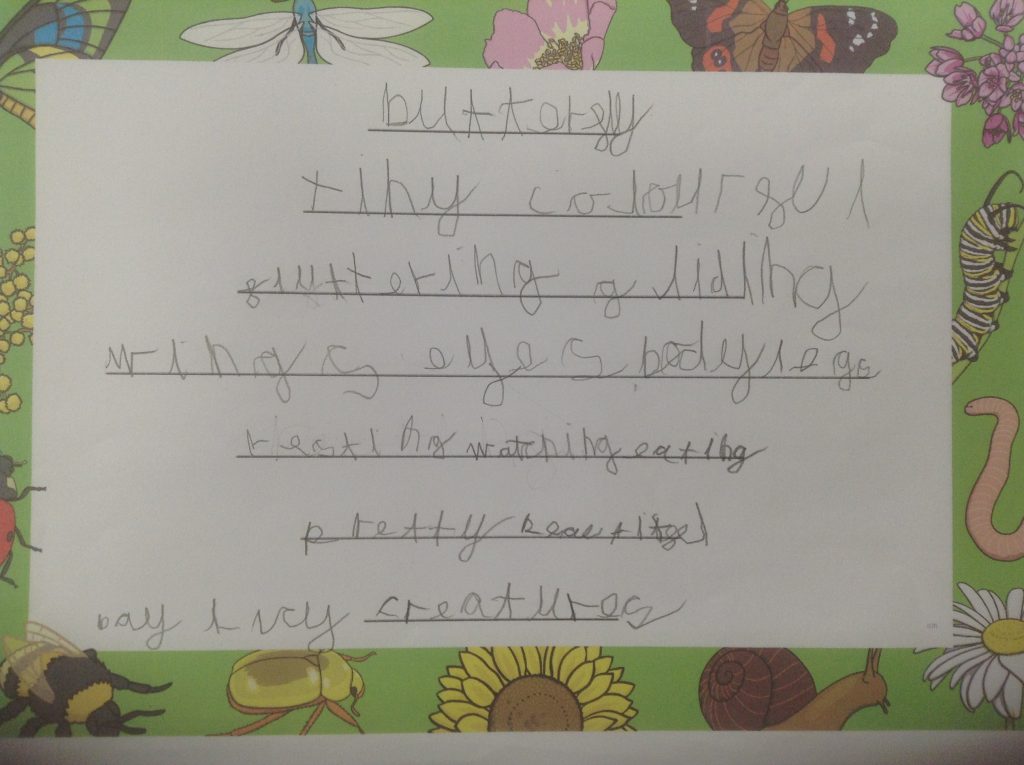 butterfly
tiny colourful
fluttering gliding
wings eyes body legs
resting watching eating
pretty beautiful
creatures